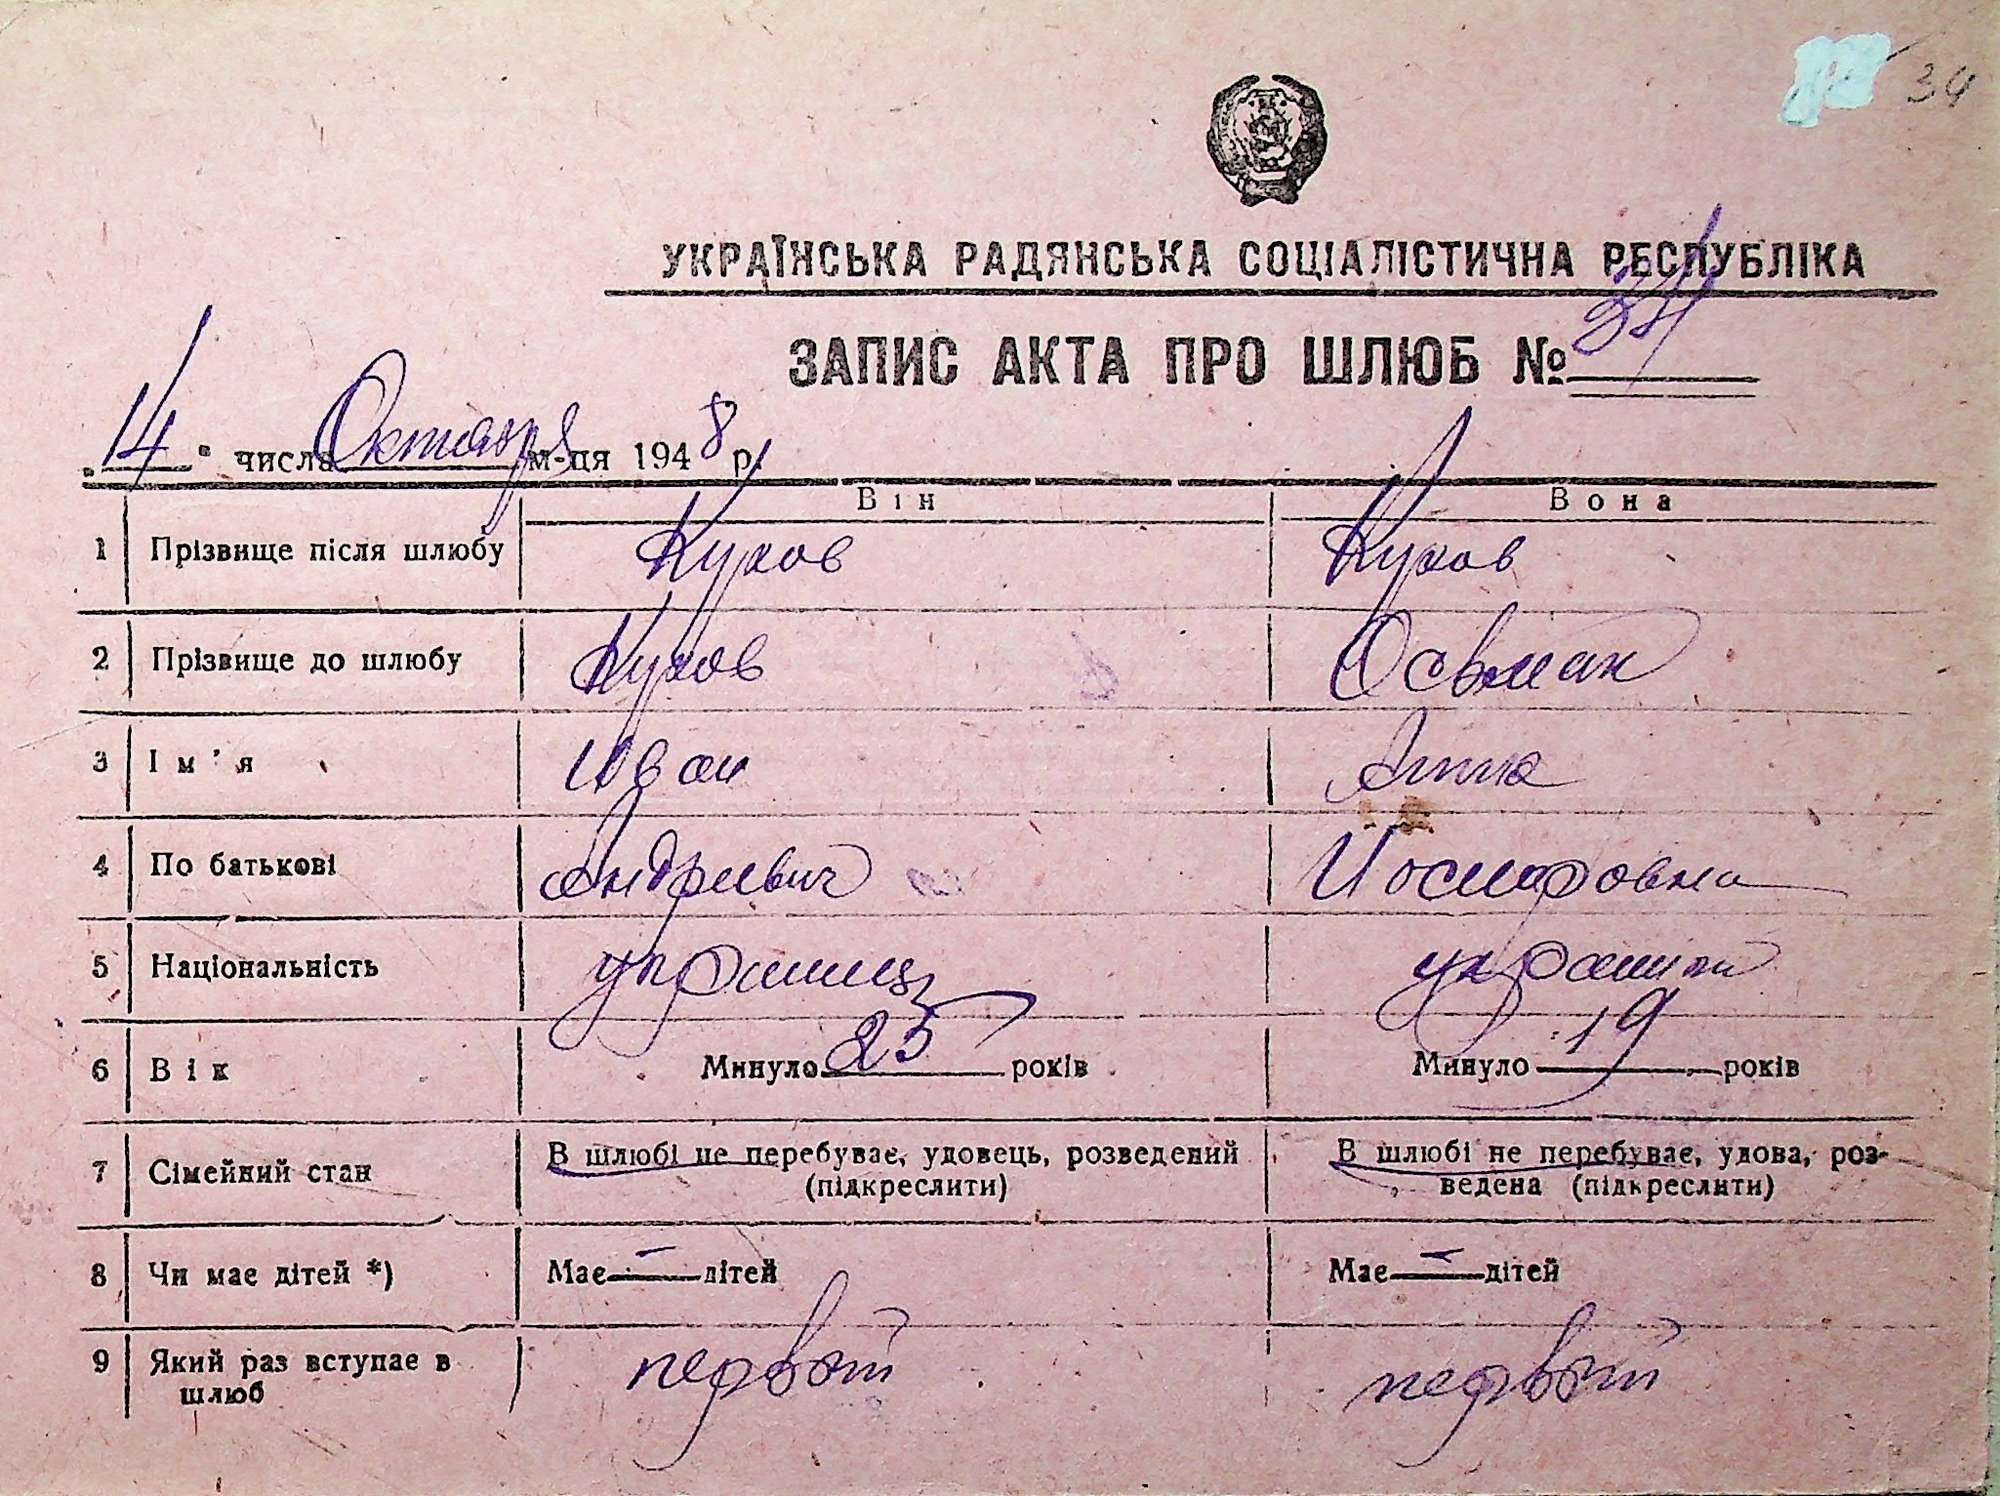 34
УКРАЇНСЬКА РАДЯНСЬКА СОЦІАЛІСТИЧНА РЕСПУБЛІКА
ЗАПИС АКТА ПРО ШЛЮБ № 34
„14" числа Октября м-ця 1948 р.
Він Вона
1 Прізвище після шлюбу Кухов Кухов
2 Прізвище до шлюбу Кухов
3 Ім'я Иван Анна
4 По батькові Андреевич Иосифовна
5 Національність украинец
6 Вік Минуло 25 років Минуло 19 років
7 Сімейний стан В шлюбі не перебуває, удовець, розведений (підкреслити) В шлюбі не перебуває, удова, роз-
ведена (підкреслити)
8 Чи має дітей *) Має — дітей Має — дітей
9 Який раз вступає в
шлюб первый первый